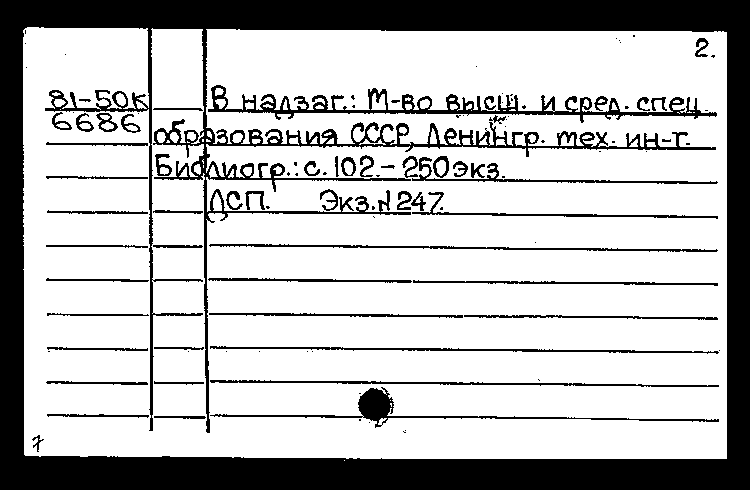 2.
81-50К В надзаг.: М-во высш. и сред. спец.
6686 образования СССР, Ленингр. тех. ин-т.
Библиогр.: с. 102. – 250 экз.
ДСП. Экз. № 247.
7